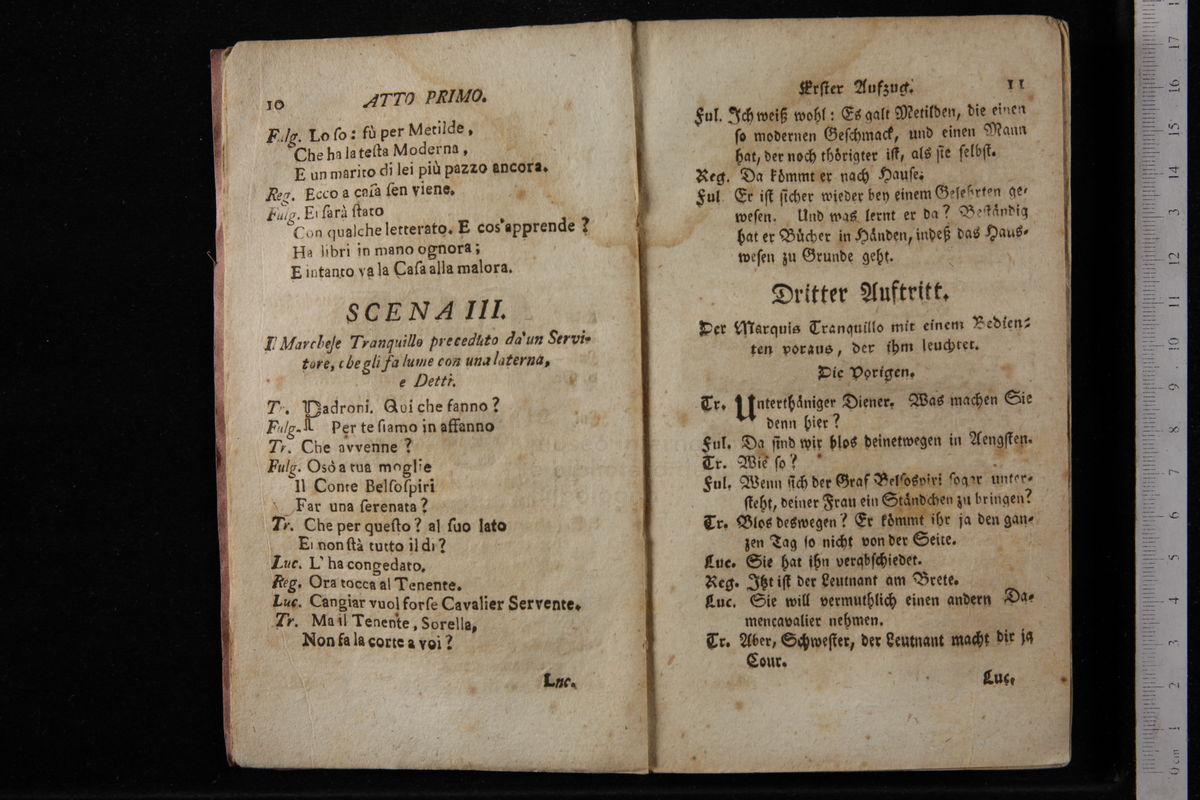 10 ATTO PRIMO.
Fulg. Lo ſo: fù per Metilde,
Che ha la teſta Moderna,
E un marito di lei più pazzo ancora.
Reg. Ecco a caſa ſen viene.
Fulg. Ei ſarà ſtato
Con qualche letterato. E cos'apprende?
Ha libri in mano ognora;
E intanto va la Caſa alla malora.
SCENA III.
Il Marcheſe Tranquillo preceduto da'un Servi-
tore, che gli fa lume con una laterna,
e Detti.
Tr. Padroni. Qui che fanno?
Fulg. Per te ſiamo in affanno
Tr. Che avvenne?
Fulg. Osò a tua moglie
Il Conte Belſoſpiri
Far una ſerenata?
Tr. Che per queſto? al ſuo lato
Ei non ſtà tutto il dì?
Luc. L'ha congedato.
Reg. Ora tocca al Tenente.
Luc. Cangiar vuol forſe Cavalier Servente.
Tr. Ma il Tenente, Sorella,
Non fa la corte a voi?
Luc.
Erſter Aufzug. 11
Ful. Ich weiß wohl: Es galt Metilden, die einen
ſo modernen Geſchmack, und einen Mann
hat, der noch thörigter iſt, als ſie ſelbſt.
Reg. Da kömmt er nach Hauſe.
Ful Er iſt ſicher wieder bey einem Gelehrten ge-
weſen. Und was lernt er da? Beſtändig
hat er Bücher in Händen, indeß das Haus-
weſen zu Grunde geht.
Dritter Auftritt.
Der Marquis Tranquillo mit einem Bedien-
ten voraus, der ihm leuchtet.
Die Vorigen.
Tr. Unterthäniger Diener. Was machen Sie
denn hier?
Ful. Da ſind wir blos deinetwegen in Aengſten.
Tr. Wie ſo?
Ful. Wenn ſich der Graf Belſospiri ſogar unter-
ſteht, deiner Frau ein Ständchen zu bringen?
Tr. Blos deswegen? Er kömmt ihr ja den gan-
zen Tag ſo nicht von der Seite.
Luc. Sie hat ihn verabſchiedet.
Reg. Itzt iſt der Leutnant am Brete.
Luc. Sie will vermuthlich einen andern Da-
mencavalier nehmen.
Tr. Aber, Schweſter, der Leutnant macht dir ja
Cour.
Luc.
0 cm 1 2 3 4 5 6 7 8 9 10 11 12 13 14 15 16 17